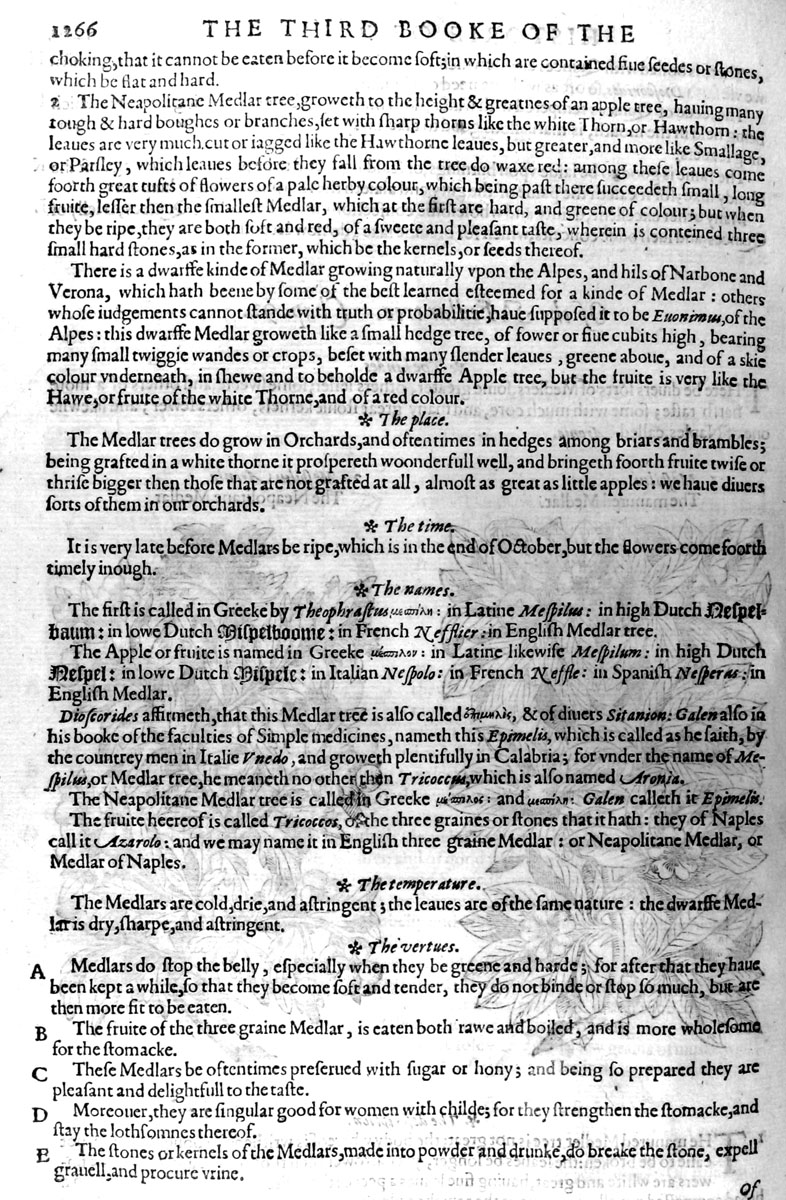 1266 THE THIRD BOOKE OF THE
choking,that it cannot be eaten before it become ſoft;in which are contained fiue ſeedes or ſtones,
which be flat and hard.
2 The Neapolitane Medlar tree,groweth to the height & greatnes of an apple tree, hauing many
tough & hard boughes or branches,ſet with ſharp thorns like the white Thorn,or Hawthorn: the
leaues are very much cut or iagged like the Hawthorne leaues, but greater,and more like Smallage,
or Parſley, which leaues before they fall from the tree do waxe red: among theſe leaues come
foorth great tufts of flowers of a pale herby colour, which being paſt there ſucceedeth ſmall, long
fruite, leſſer then the ſmalleſt Medlar, which at the firſt are hard, and greene of colour; but when
they be ripe,they are both ſoft and red, of a ſweete and pleaſant taſte, wherein is conteined three
ſmall hard ſtones,as in the former, which be the kernels,or ſeeds thereof.
There is a dwarffe kinde of Medlar growing naturally vpon the Alpes, and hils of Narbone and
Verona, which hath beene by ſome of the beſt learned eſteemed for a kinde of Medlar: others
whoſe iudgements cannot ſtande with truth or probabilitie,haue ſuppoſed it to be Euonimus,of the
Alpes: this dwarffe Medlar groweth like a ſmall hedge tree, of fower or fiue cubits high, bearing
many ſmall twiggie wandes or crops, beſet with many ſlender leaues, greene aboue, and of a skie
colour vnderneath, in ſhewe and to beholde a dwarffe Apple tree, but the fruite is very like the
Hawe,or fruite of the white Thorne,and of a red colour.
❧ The place.
The Medlar trees do grow in Orchards,and oftentimes in hedges among briars and brambles;
being grafted in a white thorne it proſpereth woonderfull well, and bringeth foorth fruite twiſe or
thriſe bigger then thoſe that are not grafted at all, almoſt as great as little apples: we haue diuers
ſorts of them in our orchards.
❧ The time.
It is very late before Medlars be ripe,which is in the end of October,but the flowers come foorth
timely inough.
❧ The names.
The firſt is called in Greeke by Theophraſtus μεσπίλη: in Latine Meſpilus: in high Dutch Neſpel-
baum: in lowe Dutch Miſpelboome: in French Nefflier: in Engliſh Medlar tree.
The Apple or fruite is named in Greeke μέσπιλον: in Latine likewiſe Meſpilum: in high Dutch
Neſpel: in lowe Dutch Miſpele: in Italian Neſpolo: in French Neffle: in Spaniſh Neſperas: in
Engliſh Medlar.
Dioſcorides affirmeth,that this Medlar tree is alſo called ἐπιμηλὶς, & of diuers Sitanion: Galen alſo in
his booke of the faculties of Simple medicines, nameth this Epimelis, which is called as he ſaith, by
the countrey men in Italie Vnedo, and groweth plentifully in Calabria; for vnder the name of Me-
ſpilus,or Medlar tree,he meaneth no other then Tricoccus,which is alſo named Aronia.
The Neapolitane Medlar tree is called in Greeke μέσπιλος: and μεσπίλη: Galen calleth it Epimelis.
The fruite heereof is called Tricoccos, of the three graines or ſtones that it hath: they of Naples
call it Azarolo: and we may name it in Engliſh three graine Medlar: or Neapolitane Medlar, or
Medlar of Naples.
❧ The temperature.
The Medlars are cold,drie,and aſtringent; the leaues are of the ſame nature: the dwarffe Med-
lar is dry,ſharpe,and aſtringent.
❧ The vertues.
A Medlars do ſtop the belly, eſpecially when they be greene and harde; for after that they haue
been kept a while,ſo that they become ſoft and tender, they do not binde or ſtop ſo much, but are
then more fit to be eaten.
B The fruite of the three graine Medlar, is eaten both rawe and boiled, and is more wholeſome
for the ſtomacke.
C Theſe Medlars be oftentimes preſerued with ſugar or hony; and being ſo prepared they are
pleaſant and delightfull to the taſte.
D Moreouer,they are ſingular good for women with childe; for they ſtrengthen the ſtomacke,and
ſtay the lothſomnes thereof.
E The ſtones or kernels of the Medlars,made into powder and drunke,do breake the ſtone, expell
grauell,and procure vrine.
Of